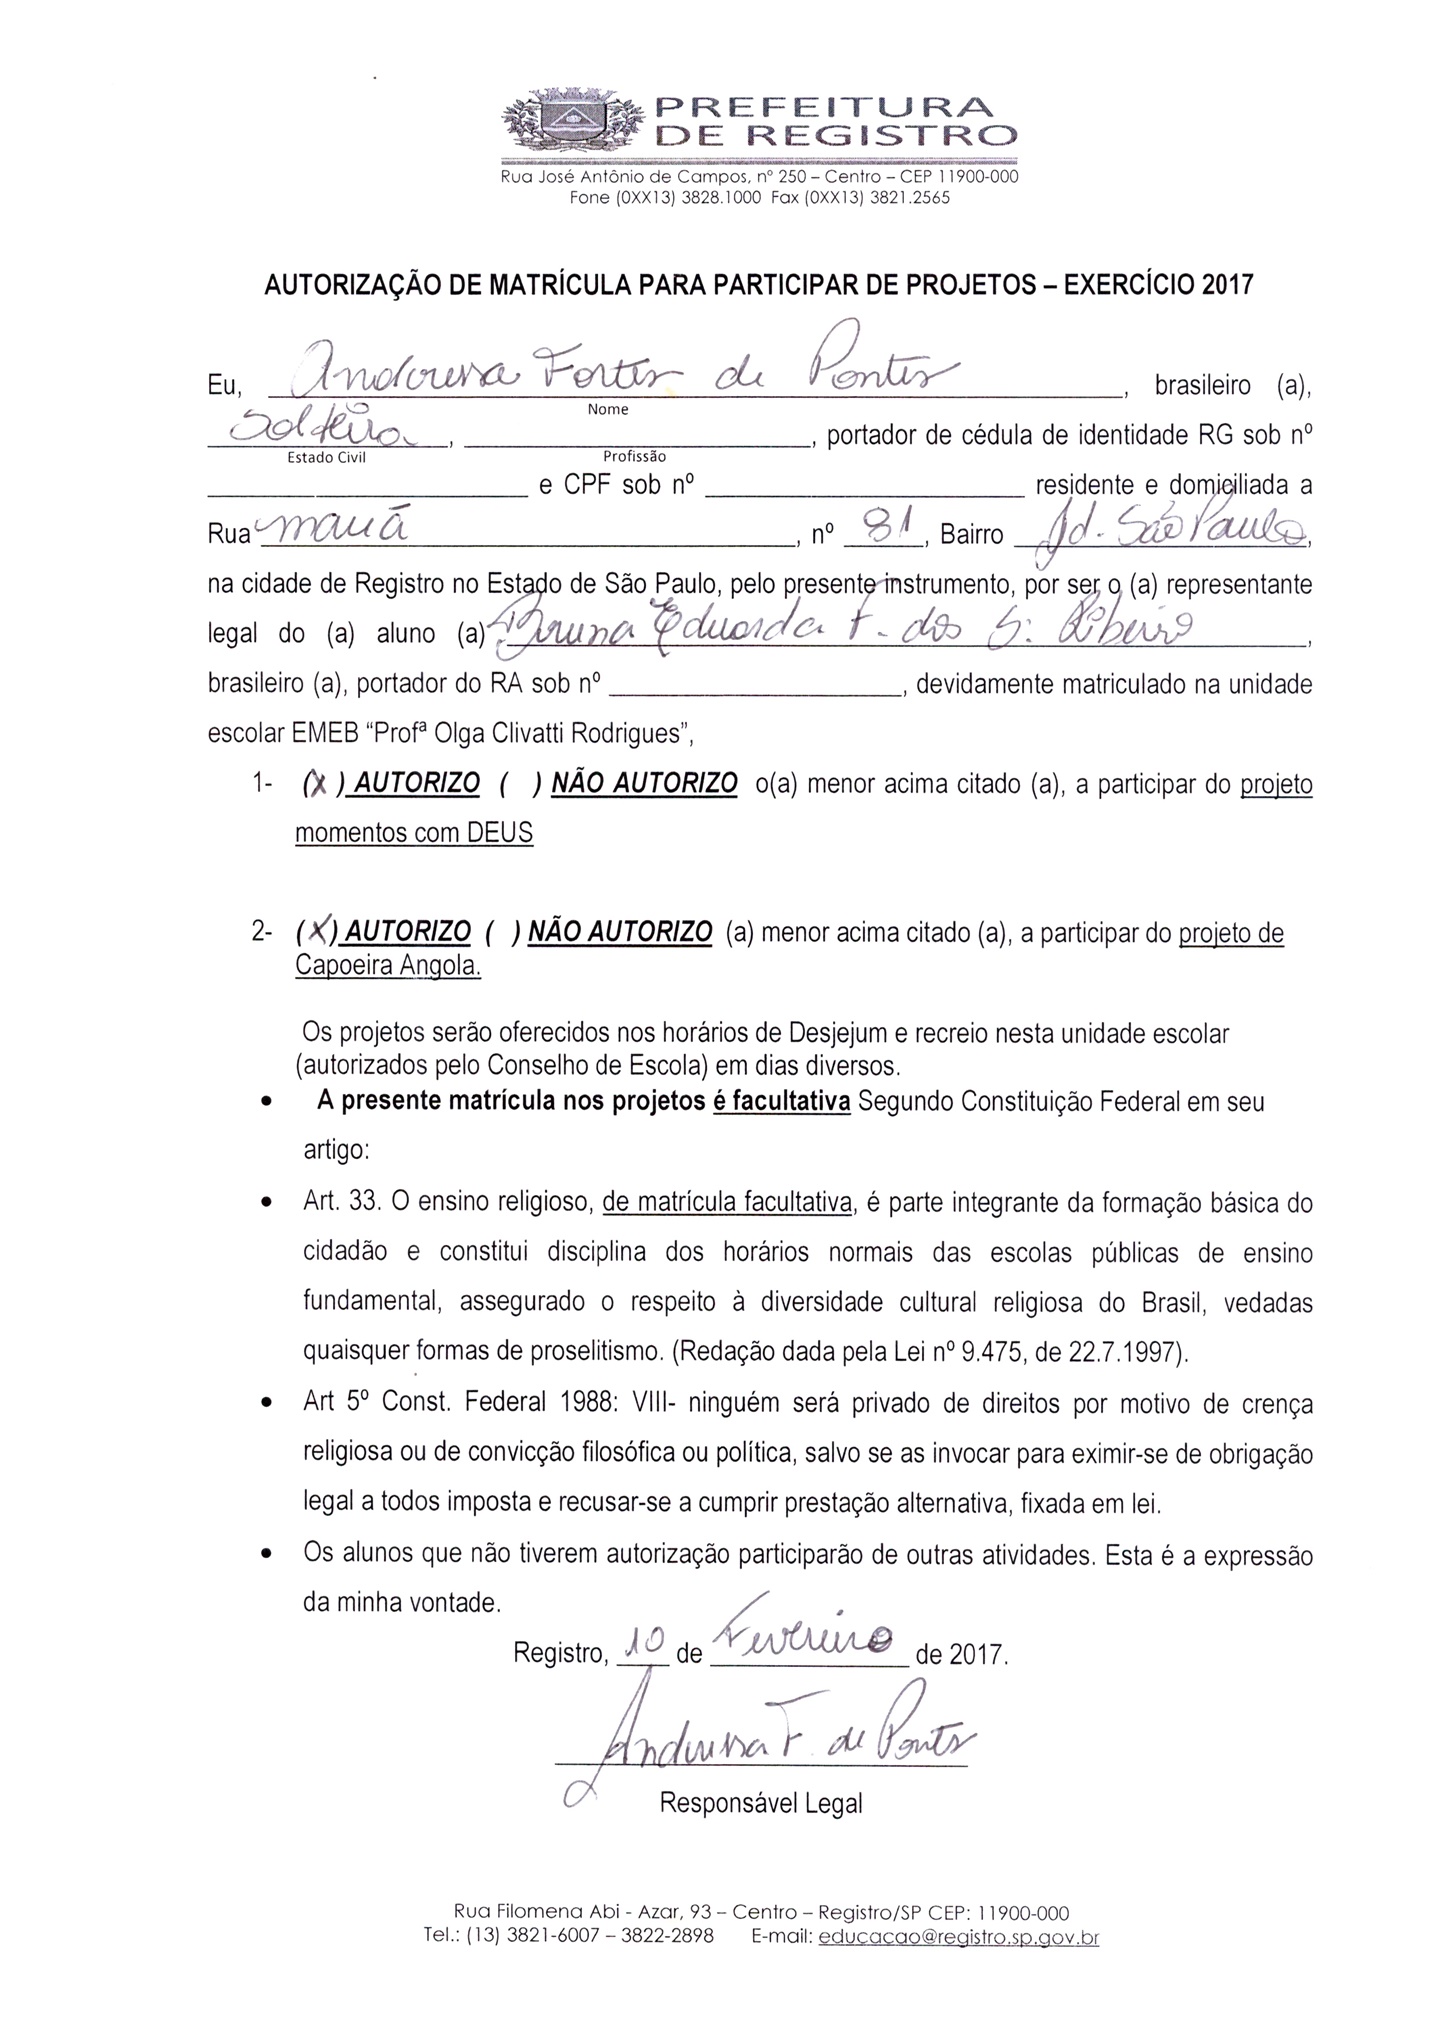 PREFEITURA
DE REGISTRO
Rua José Antônio de Campos, nº 250 – Centro – CEP 11900-000
Fone (0XX13) 3828.1000 Fax (0XX13) 3821.2565
AUTORIZAÇÃO DE MATRÍCULA PARA PARTICIPAR DE PROJETOS – EXERCÍCIO 2017
Eu, Fortes de Pontes, brasileiro (a),
Nome
Solteira, , portador de cédula de identidade RG sob nº
Estado Civil Profissão
e CPF sob nº residente e domiciliada a
Rua mauá, nº 81, Bairro Jd. São Paulo,
na cidade de Registro no Estado de São Paulo, pelo presente instrumento, por ser o (a) representante
legal do (a) aluno (a) Bruna Eduarda F. dos S. Ribeiro,
brasileiro (a), portador do RA sob nº , devidamente matriculado na unidade
escolar EMEB “Profª Olga Clivatti Rodrigues”,
1- (x) AUTORIZO ( ) NÃO AUTORIZO o(a) menor acima citado (a), a participar do projeto
momentos com DEUS
2- (x) AUTORIZO ( ) NÃO AUTORIZO (a) menor acima citado (a), a participar do projeto de
Capoeira Angola.
Os projetos serão oferecidos nos horários de Desjejum e recreio nesta unidade escolar
(autorizados pelo Conselho de Escola) em dias diversos.
• A presente matrícula nos projetos é facultativa Segundo Constituição Federal em seu
artigo:
• Art. 33. O ensino religioso, de matrícula facultativa, é parte integrante da formação básica do
cidadão e constitui disciplina dos horários normais das escolas públicas de ensino
fundamental, assegurado o respeito à diversidade cultural religiosa do Brasil, vedadas
quaisquer formas de proselitismo. (Redação dada pela Lei nº 9.475, de 22.7.1997).
• Art 5º Const. Federal 1988: VIII- ninguém será privado de direitos por motivo de crença
religiosa ou de convicção filosófica ou política, salvo se as invocar para eximir-se de obrigação
legal a todos imposta e recusar-se a cumprir prestação alternativa, fixada em lei.
• Os alunos que não tiverem autorização participarão de outras atividades. Esta é a expressão
da minha vontade.
Registro, 10 de Fevereiro de 2017.
F. de Pontes
Responsável Legal
Rua Filomena Abi - Azar, 93 – Centro – Registro/SP CEP: 11900-000
Tel.: (13) 3821-6007 – 3822-2898 E-mail: educacao@registro.sp.gov.br